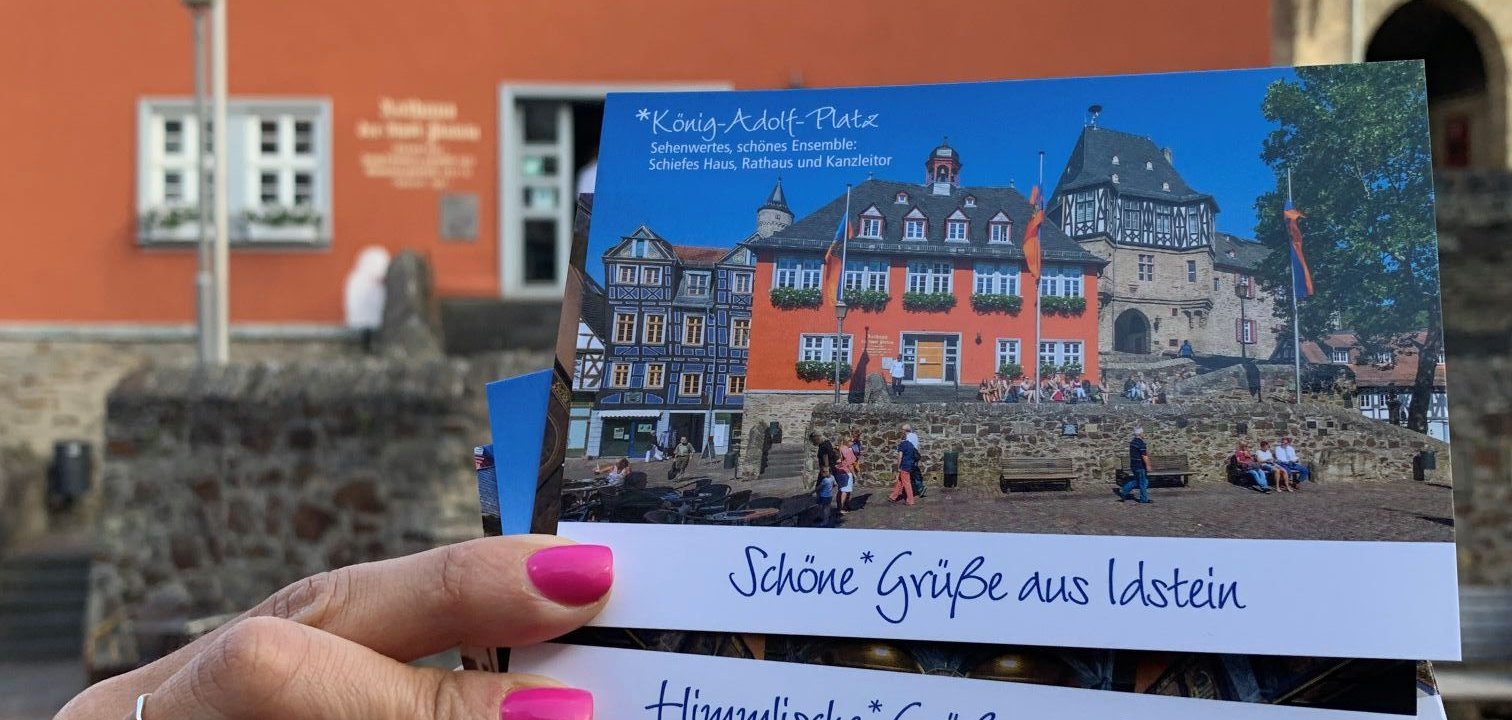 Rathaus
der Stadt Idstein
*König-Adolf-Platz
Sehenswertes, schönes Ensemble:
Schiefes Haus, Rathaus und Kanzleitor
Schöne* Grüße aus Idstein
Himmlische*